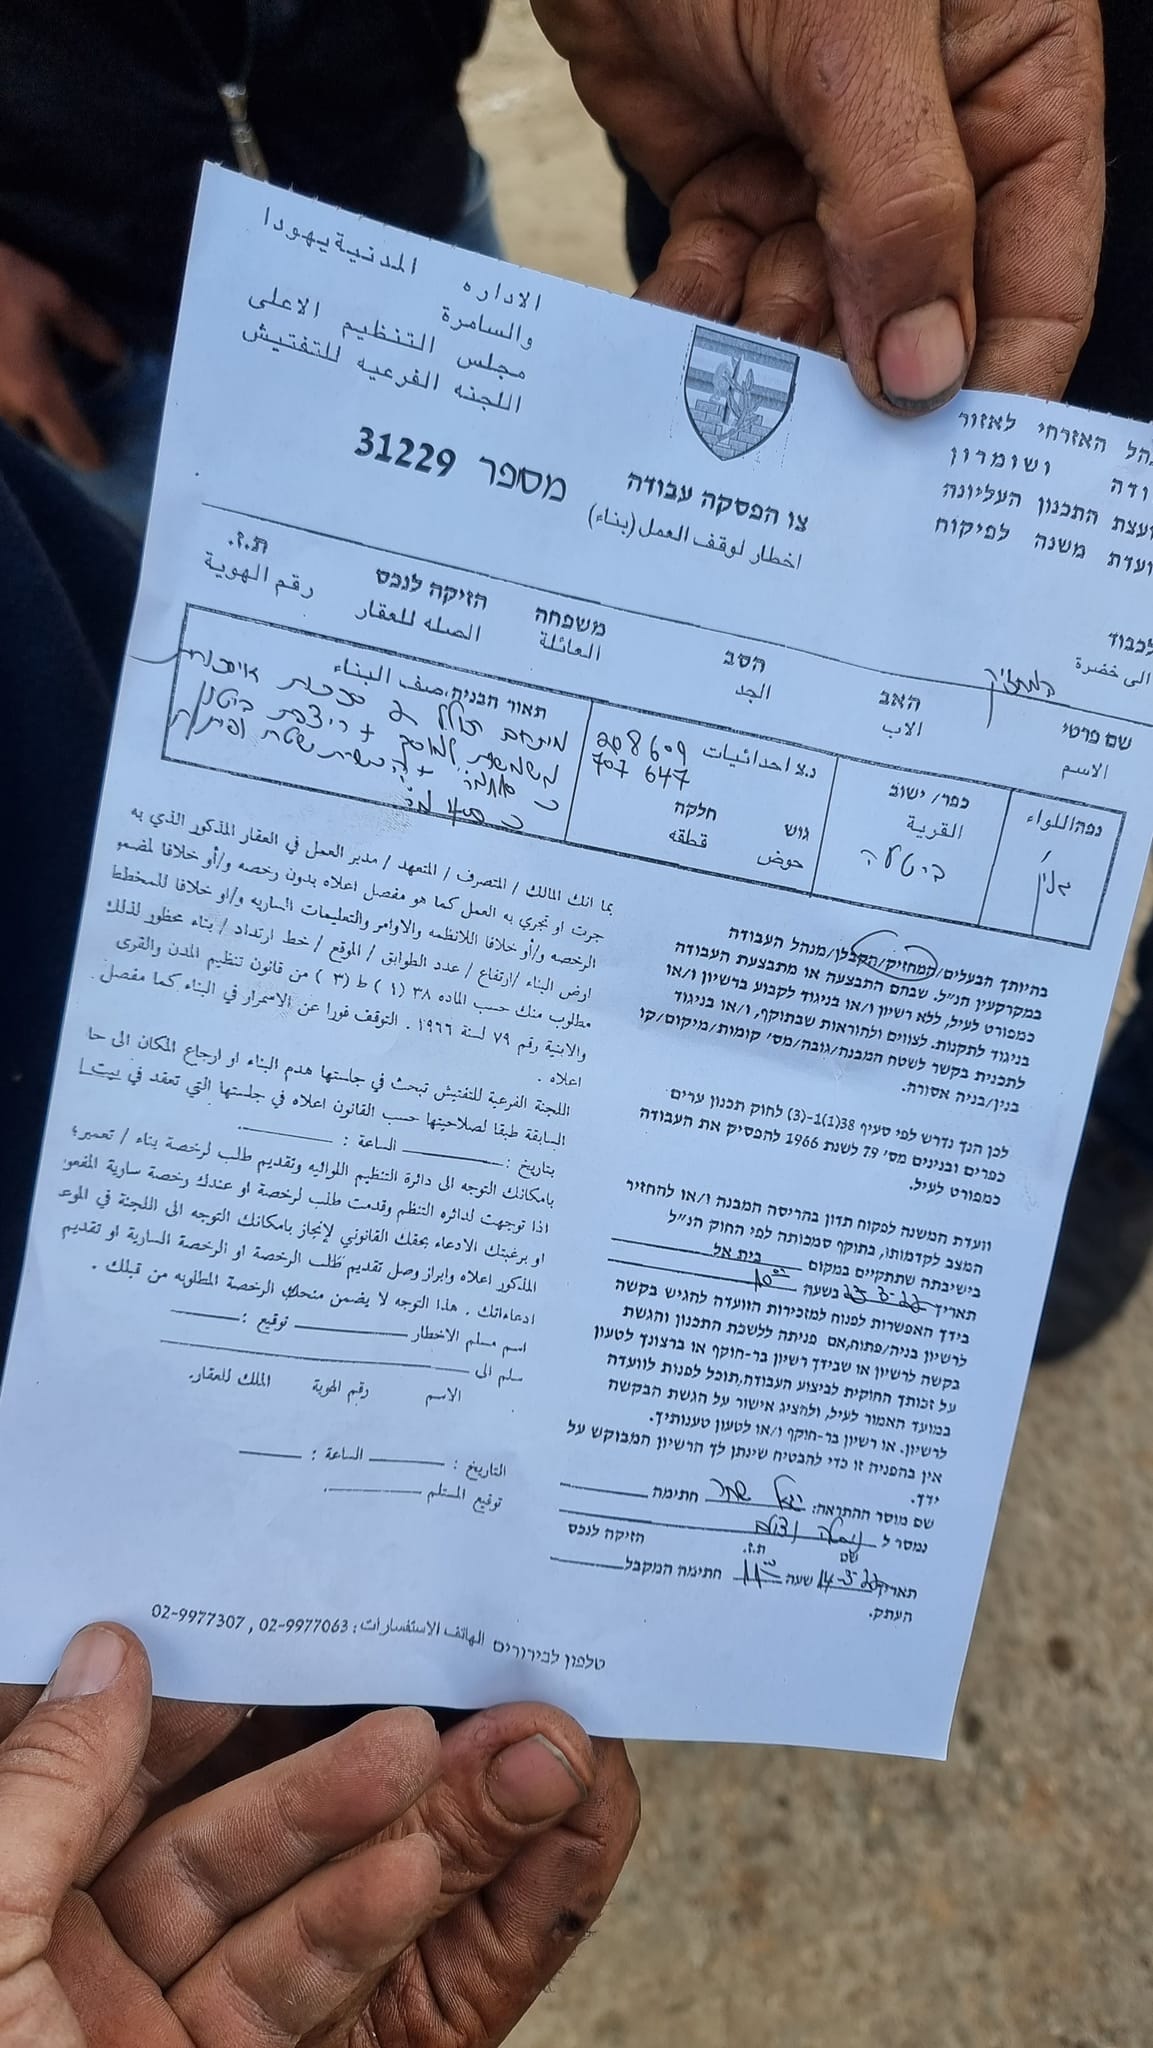 الاداره المدنية يهودا
والسامرة
مجلس التنظيم الاعلى
اللجنه الفرعيه للتفتيش
האזרחי לאזור
ושומרון
התכנון העליונה
משנה לפיקוח
צו הפסקה עבודה מספר 31229
اخطار لوقف العمل (بناء)
לכבוד
الى حضرة
המחזיק
שם פרטי האב הסב משפחה הזיקה לנכס ת.ז.
الاسم الاب الجد العائلة الصله للعقار رقم الهوية
נפה اللواء
כפר/ ישוב
القرية
נ.צ احداثيات 208609
707647
גוש חלקה
حوض قطقه
תאור הבניה, صف البناء
בהיותך הבעלים/המחזיק/הקבלן/מנהל העבודה
במקרקעין הנ"ל. שבהם התבצעה או מתבצעת העבודה
כמפורט לעיל, ללא רשיון ו/או בניגוד לקבוע ברשיון ו/או
בניגוד לתקנות. לצווים ולהוראות שבתוקף, ו/או בניגוד
לתכנית בקשר לשטח המבנה/גובה/מס' קומות/מיקום/קו
בנין/בניה אסורה.
לכן הנך נדרש לפי סעיף 38(1)-(3) לחוק תכנון ערים
כפרים ובנינים מס' 79 לשנת 1966 להפסיק את העבודה
כמפורט לעיל.
וועדת המשנה לפקוח תדון בהריסה המבנה ו/או להחזיר
המצב לקדמותו, בתוקף סמכותה לפי החוק הנ"ל
בישיבתה שתתקיים במקום בית אל
תאריך 23-3-22 בשעה 10:00
בידך האפשרות לפנות למזכירות הוועדה להגיש בקשה
לרשיון בניה/פתוח, אם פניתה ללשכת התכנון והגשת
בקשה לרשיון או שבידך רשיון בר-תוקף או ברצונך לטעון
על זכותך החוקית לביצוע העבודה, תוכל לפנות לוועדה
במועד האמור לעיל, ולהציג אישור על הגשת הבקשה
לרשיון. או רשיון בר-תוקף ו/או לטעון טענותיך.
אין בהפניה זו כדי להבטיח שינתן לך הרשיון המבוקש על
ידך.
שם מוסר ההתראה: יגאל חתימה
נמסר ל
שם ת.ז. הזיקה לנכס
תאריך 14-3-22 שעה חתימה המקבל
העתק.
بما انك المالك / المتصرف / المتعهد / مدير العمل في العقار المذكور الذي به
جرت او تجري به العمل كما هو مفصل اعلاه بدون رخصه و/أو خلافا لمضمو
الرخصه و/أو خلافا اللانظمه والاوامر والتعليمات الساريه و/او خلافا للمخطط
ارض البناء /ارتفاع / عدد الطوابق / الموقع / خط ارتداد / بناء محظور لذلك
مطلوب منك حسب الماده ٣٨ (١) ط (٣) من قانون تنظيم المدن والقرى
والابنية رقم ٧٩ لسنة ١٩٦٦. التوقف فورا عن الاسمرار في البناء كما مفصل
اعلاه.
اللجنة الفرعية للتفتيش تبحث في جاستها هدم البناء او ارجاع المكان الى حا
السابقة طبقا لصلاحيتها حسب القانون اعلاه في جلستها التي تعقد في بيت ا
بتاريخ: الساعة:
بامكانك التوجه الى دائرة التنظيم اللوائيه وتقديم طلب لرخصة بناء / تعمير؛
اذا توجهت لدائره التنظم وقدمت طلب لرخصة او عندك رخصة سارية المفعو
او برغبتك الادعاء بحقك القانوني لإنجاز بامكانك التوجه الى اللجنة في الموعـ
المذكور اعلاه وابراز وصل تقديم طلب الرخصة او الرخصة السارية او تقديم
ادعاءاتك. هذا التوجه لا يضمن منحك الرخصة المطلوبه من قبلك.
اسم مسلم الاخطار توقيع:
سلم الى
الاسم رقم الهوية الملك للعقار.
التاريخ: الساعة:
توقيع المستلم
טלפון לבירורים الهاتف الاستفسارات: 02-9977063, 02-9977307